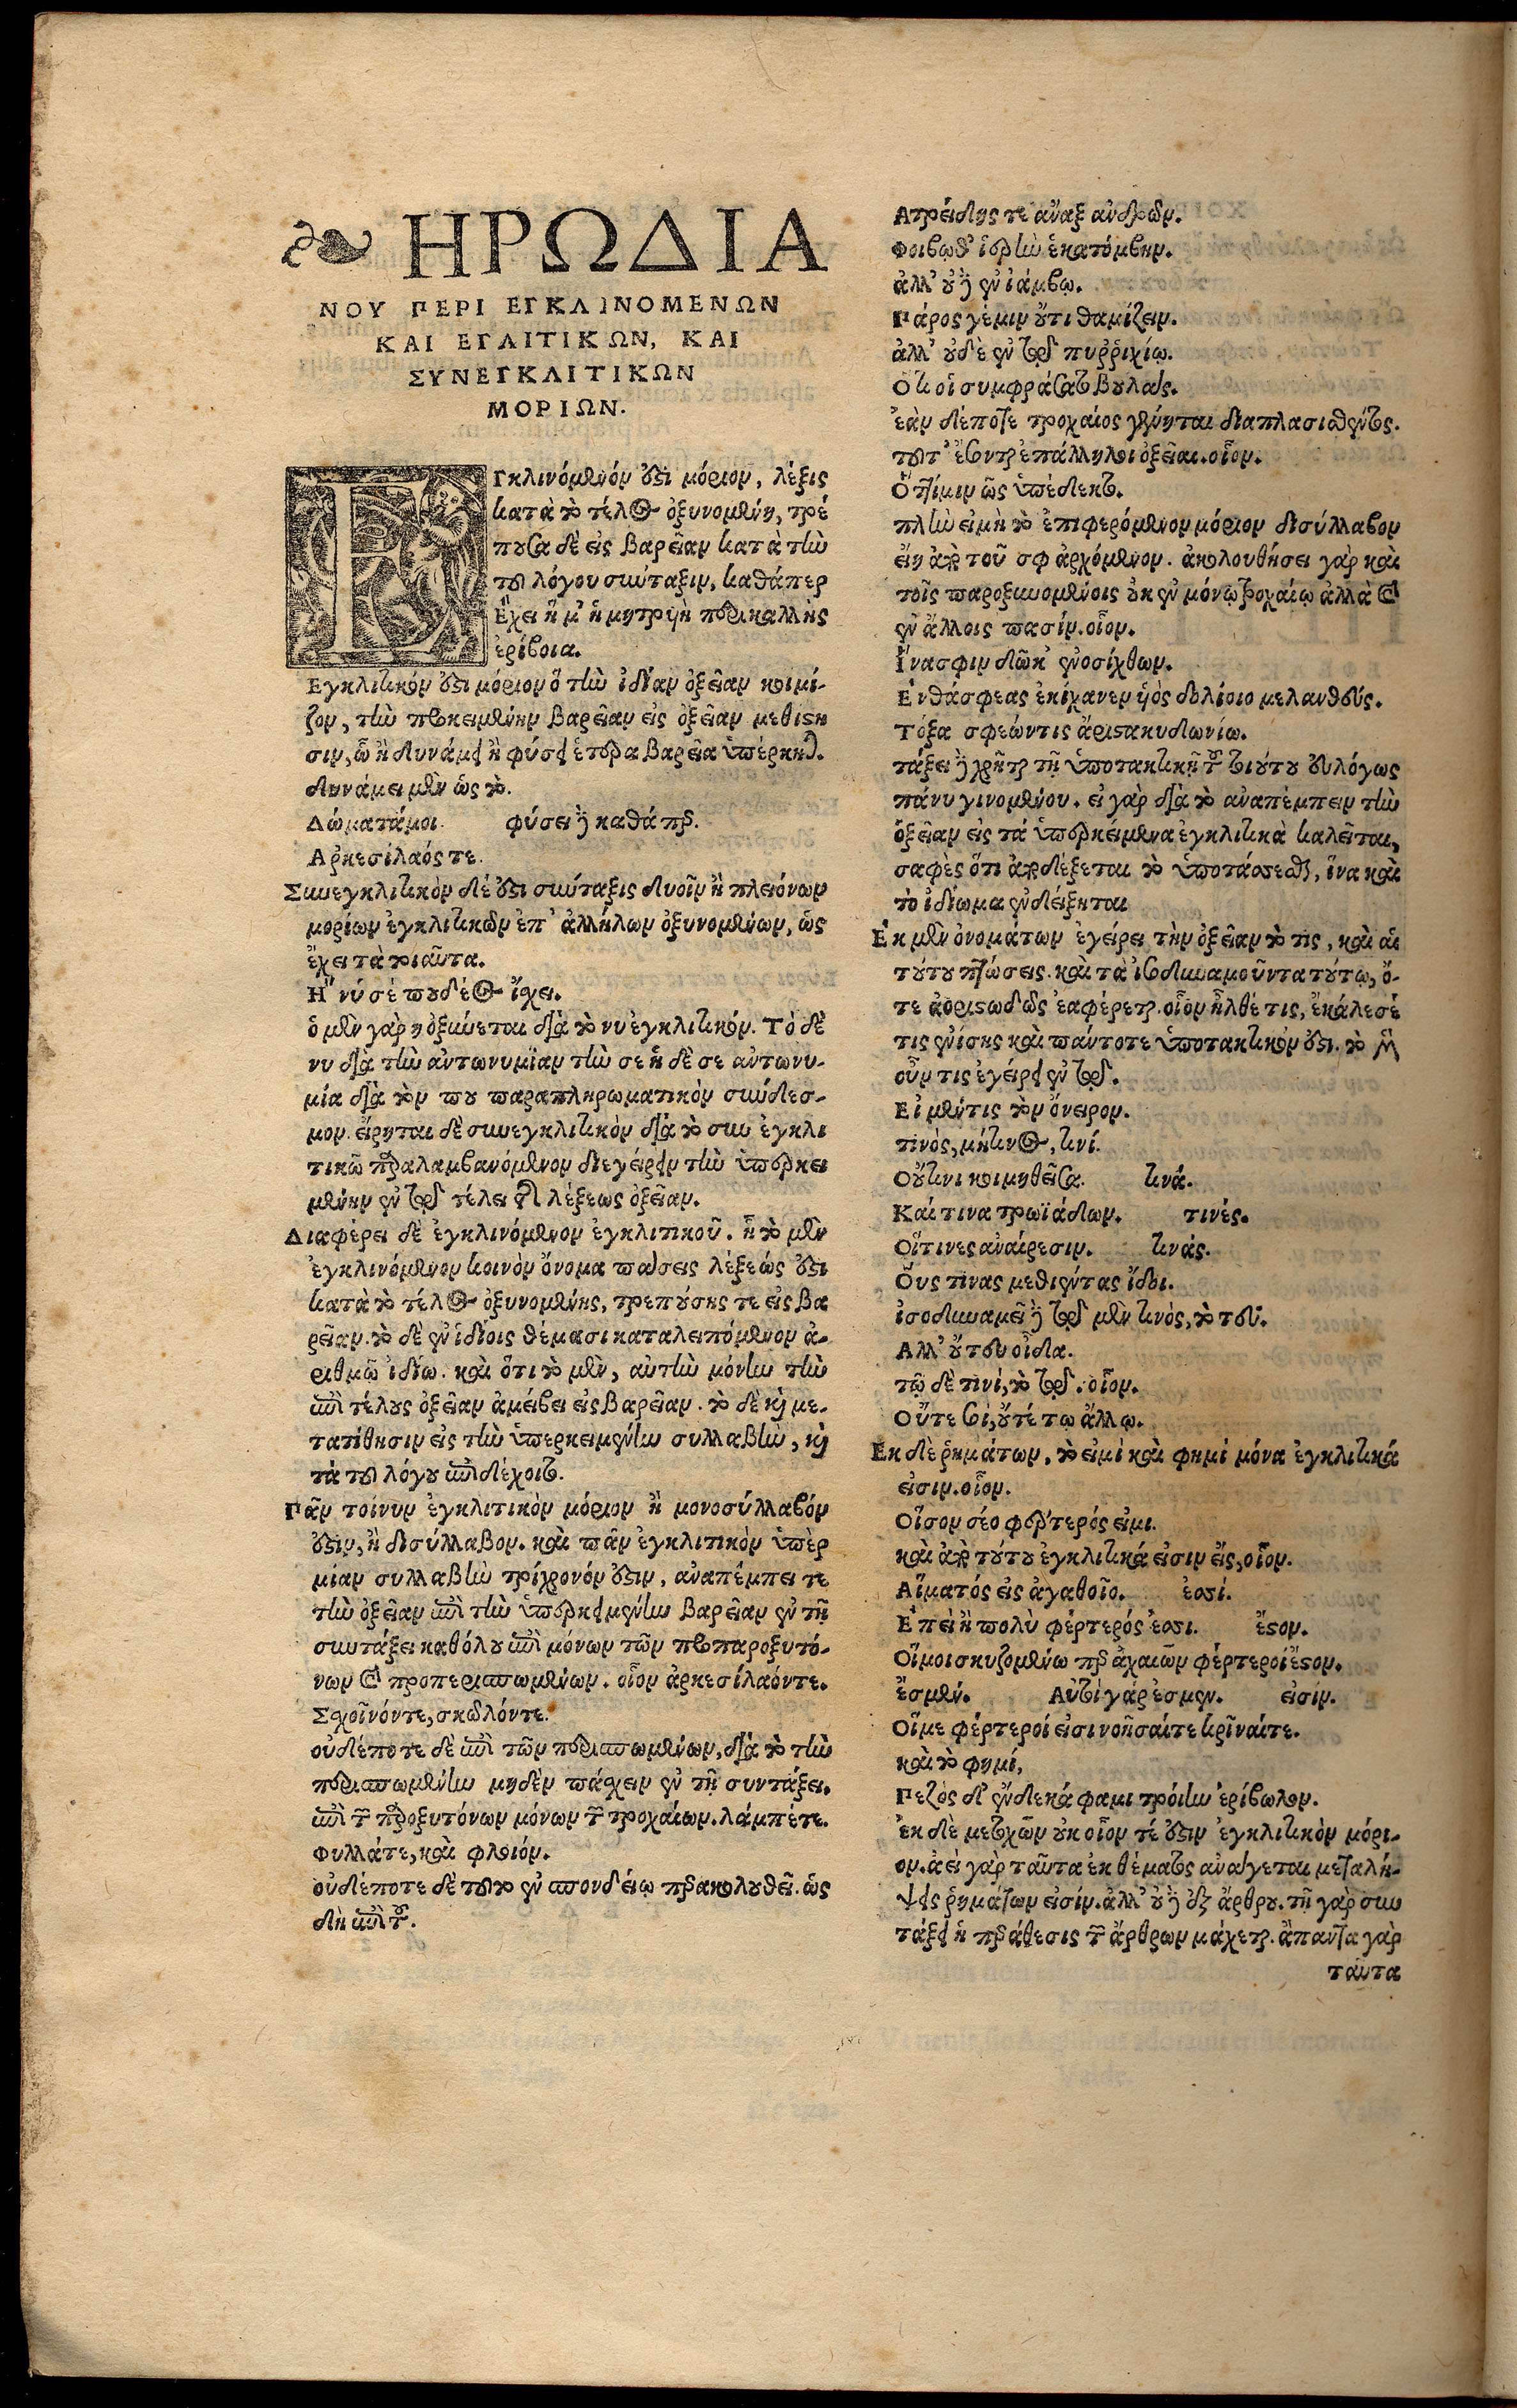 ΗΡΩΔΙΑ
ΝΟΥ ΠΕΡΙ ΕΓΚΛΙΝΟΜΕΝΩΝ
ΚΑΙ ΕΓΛΙΤΙΚΩΝ, ΚΑΙ
ΣΥΝΕΓΚΛΙΤΙΚΩΝ
ΜΟΡΙΩΝ.
Εγκλινόμενόν ὅστι μόριον, λέξις
κατὰ τὸ τέλος ὀξυνομένη, τρέ
πουσα δὲ εἰς βαρεῖαν κατὰ τὴν
τοῦ λόγου σύνταξιν, καθάπερ
Ἔχει ἥ μ' ἡ μητρυὴ περικαλλὴς
ἐρίβοια.
Εγκλιτικόν ὅστι μόριον ὃ τὴν ἰδίαν ὀξεῖαν κοιμί-
ζον, τὴν προκειμένην βαρεῖαν εἰς ὀξεῖαν μεθίστη
σιν, ᾧ ἢ δυνάμει ἢ φύσει ἑτέρα βαρεῖα ὑπέρκηται.
δυνάμει μὲν ὡς τὸ.
Δώματάμοι. φύσει δὲ καθάπερ.
Αρκεσίλαός τε.
Συνεγκλιτικὸν δέ ἐστι σύνταξις δυοῖν ἢ πλειόνων
μορίων ἐγκλιτικῶν ἐπ' ἀλλήλων ὀξυνομένων, ὡς
ἔχει τὰ τοιαῦτα.
Ἤ νύ σέ που δέος ἴχει.
ὁ μὲν γὰρ η ὀξύνεται διὰ τὸ νυ ἐγκλιτικόν. Τὸ δὲ
νυ διὰ τὴν ἀντωνυμίαν τὴν σε ἡ δὲ σε ἀντωνυ-
μία διὰ τὸν που παραπληρωματικὸν σύνδεσ-
μον. εἴρηται δὲ συνεγκλιτικὸν διὰ τὸ συν ἐγκλι
τικῶ παραλαμβανόμενον διεγείρειν τὴν ὑπερκει
μένην ἐν τῷ τέλει τῆς λέξεως ὀξεῖαν.
Διαφέρει δὲ ἐγκλινόμενον ἐγκλιτικοῦ. ἧ τὸ μὲν
ἐγκλινόμενον κοινὸν ὄνομα πάσεις λέξεώς ἐστι
κατὰ τὸ τέλος ὀξυνομένης, τρεπούσης τε εἰς βα
ρεῖαν. τὸ δὲ ἐν ἰδίοις θέμασι καταλειπόμενον ἀ-
ριθμῷ ἰδίω. καὶ ὅτι τὸ μὲν, αὐτὴν μόνην τὴν
ἐπὶ τέλους ὀξεῖαν ἀμείβει εἰς βαρεῖαν. τὸ δὲ καὶ με-
τατίθησιν εἰς τὴν ὑπερκειμένην συλλαβὴν, καὶ
τὰ τοῦ λόγου ἐπιδέχοιτο.
Πᾶν τοίνυν ἐγκλιτικὸν μόριον ἢ μονοσύλλαβόν
ἐστιν, ἢ δισύλλαβον. καὶ πᾶν ἐγκλιτικὸν ὑπὲρ
μίαν συλλαβὴν τρίχρονόν ἐστιν, ἀναπέμπει τε
τὴν ὀξεῖαν ἐπὶ τὴν ὑπερκειμένην βαρεῖαν ἐν τῇ
συντάξει καθόλου ἐπὶ μόνων τῶν προπαροξυτό-
νων καὶ προπερισπωμένων. οἷον ἀρκεσίλαόντε.
Σχοῖνόντε, σκῶλόντε.
οὐδέποτε δὲ ἐπὶ τῶν περισπωμένων, διὰ τὸ τὴν
περισπωμένην μηδὲν πάσχειν ἐν τῇ συντάξει.
ἐπὶ τῶν παροξυτόνων μόνων τῶν τροχαίων. λάμπέτε.
Φυλλάτε, καὶ φλοιόν.
οὐδέποτε δὲ τοῦτο ἐν σπονδείῳ παρακολουθεῖ. ὡς
δὴ ἐπὶ τοῦ.
Ατρείδης τε ἄναξ ἀνδρῶν.
Φοιβωθ' ἱερὴν ἑκατόμβην.
ἀλλ' οὐδ' ἐν ἰάμβῳ.
Πάρος γέμιν οὔτι θαμίζειν.
ἀλλ' οὐδὲ ἐν τῷ πυῤῥιχίῳ.
Ὅτι οἱ συμφράσατο βουλάς.
ἐὰν δέποτε τροχαίος γένηται διαπλασιαθέντος.
τότ' ἔσονται ἐπάλληλοι ὀξεῖαι. οἷον.
Ὅττίμιν ὣς ὑπέδεκτο.
πλὴν εἰμὴ τὸ ἐπιφερόμενον μόριον δισύλλαβον
εἴη ἀπὸ τοῦ σφ ἀρχόμενον. ἀκολουθήσει γὰρ καὶ
τοῖς παροξυνομένοις οὐκ ἐν μόνῳ τροχαίῳ ἀλλὰ καὶ
ἐν ἄλλοις πασίν. οἷον.
Ἵνασφιν δῶκ' ἐνοσίχθων.
Ἐνθάσφεας ἐκίχανεν ὑὸς δολίοιο μελανθεύς.
Τόξα σφεώντις ἄριστακυδωνίω.
τάξει δὲ χρῆται τῇ ὑποτακτικῇ τοῦ τοιούτου εὐλόγως
πάνυ γινομένου. εἰ γὰρ διὰ τὸ ἀναπέμπειν τὴν
ὀξεῖαν εἰς τὰ ὑπερκείμενα ἐγκλιτικὰ καλεῖται,
σαφὲς ὅτι ἀποδέξεται τὸ ὑποτάσσεσθαι, ἵνα καὶ
τὸ ἰδίωμα ἐνδείξηται
Ἐκ μὲν ὀνομάτων ἐγείρει τὴν ὀξεῖαν τὸ τὶς, καὶ αἱ
τούτου πτώσεις. καὶ τὰ ἰσοδυναμοῦντα τούτῳ, ὅ-
τε ἀοριστωδῶς ἐαφέρεται. οἷον ἦλθέ τις, ἐκάλεσέ
τις ἐνίσης καὶ πάντοτε ὑποτακτικόν ἐστι. τὸ
οὖν τις ἐγείρει ἐν τῷ.
Εἰ μέντις τὸν ὄνειρον.
τινὸς, μήτινος, τινί.
Οὔτινι κοιμηθεῖσα. τινά.
Καί τινα τρωϊάδων. τινές.
Οἵτινες ἀναίρεσιν. τινάς.
Οὕς τινας μεθιέντας ἴδοι.
ἰσοδυναμεῖ δὲ τῷ μὲν τινὸς, τὸ τεῦ.
Αλλ' οὔτευ οἶδα.
τῷ δὲ τινί, τὸ τῷ. οἷον.
Οὔτε σοί, οὔτέ τῳ ἄλλῳ.
Εκ δὲ ῥημάτων, τὸ εἰμὶ καὶ φημὶ μόνα ἐγκλιτικά
εἰσιν. οἷον.
Οἷσον σέο φέρτερός εἰμι.
καὶ ἀπὸ τούτου ἐγκλιτικά εἰσιν εἴς, οἷον.
Αἵματός εἰς ἀγαθοῖο. ἐσσί.
Ἐπεὶ ἢ πολὺ φέρτερός ἐσσι. ἔστον.
Οἵμοισκυζομένω περ ἀχαιῶν φέρτεροί ἔστον.
ἔσμεν. Αὐτόι γάρ ἐσμεν. εἰσίν.
Οἵμε φέρτεροί εἰσι νοῆσαίτε κρῖναίτε.
καὶ τὸ φημί,
Πεζὸς δ' ἕνδεκά φαμι τρόιην ἐρίβωλον.
ἐκ δὲ μετοχῶν οὐκ οἷον τέ ἐστιν ἐγκλιτικὸν μόρι-
ον. ἀεὶ γὰρ ταῦτα ἐκ θέματος ἀνάγεται μεταλή-
ψεις ῥημάτων εἰσίν. ἀλλ' οὐδ' ἐξ ἄρθρου. τῇ γὰρ συν
τάξει ἡ παράθεσις τῶν ἄρθρων μάχεται. ἅπαντα γὰρ
ταῦτα